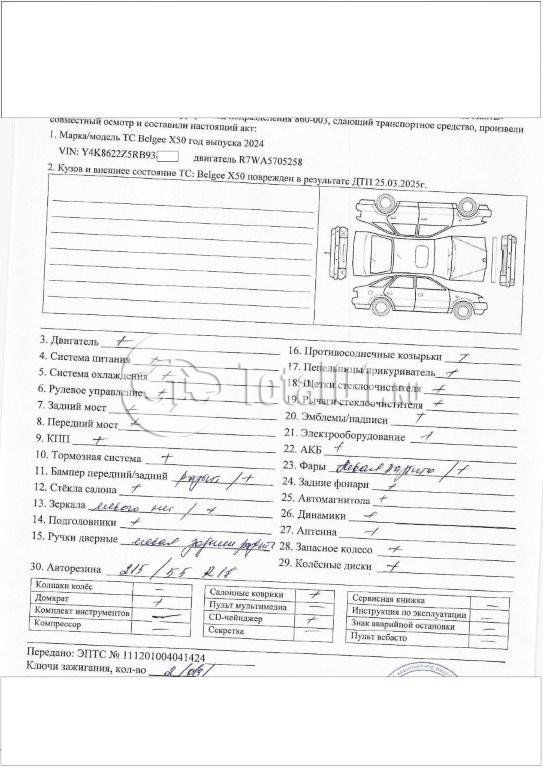 совместный осмотр и составили настоящий акт:
подразделения 860-003, сдающий транспортное средство, произвели
1. Марка/модель ТС Belgee X50 год выпуска 2024
VIN: Y4K8622Z5RB93 двигатель R7WA5705258
2. Кузов и внешнее состояние ТС: Belgee X50 поврежден в результате ДТП 25.03.2025г.
3. Двигатель +
4. Система питания +
5. Система охлаждения +
6. Рулевое управление +
7. Задний мост +
8. Передний мост +
9. КПП +
10. Тормозная система +
11. Бампер передний/задний разбит / +
12. Стёкла салона +
13. Зеркала левого нет / +
14. Подголовники +
15. Ручки дверные левая задняя
16. Противосолнечные козырьки +
17. Пепельницы/прикуриватель +
18. Щетки стеклоочистителя +
19. Рычаги стеклоочистителя +
20. Эмблемы/надписи +
21. Электрооборудование +
22. АКБ +
23. Фары левая разбита / +
24. Задние фонари +
25. Автомагнитола +
26. Динамики +
27. Антенна +
28. Запасное колесо +
29. Колёсные диски +
30. Авторезина 215 / 55 R18
Колпаки колёс —
Домкрат +
Комплект инструментов —
Компрессор —
Салонные коврики +
Пульт мультимедиа —
CD-чейнджер +
Секретка —
Сервисная книжка —
Инструкция по эксплуатации —
Знак аварийной остановки —
Пульт вебасто —
Передано: ЭПТС № 111201004041424
Ключи зажигания, кол-во 2
Total01.ru